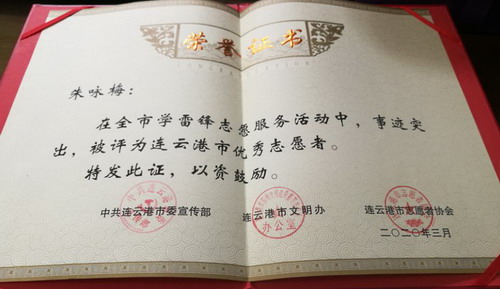 荣誉证书
朱咏梅：
在全市学雷锋志愿服务活动中，事迹突
出，被评为连云港市优秀志愿者。
特发此证，以资鼓励。
中共连云港市委宣传部 连云港市文明办 连云港市志愿者协会
办公室
二〇二〇年三月